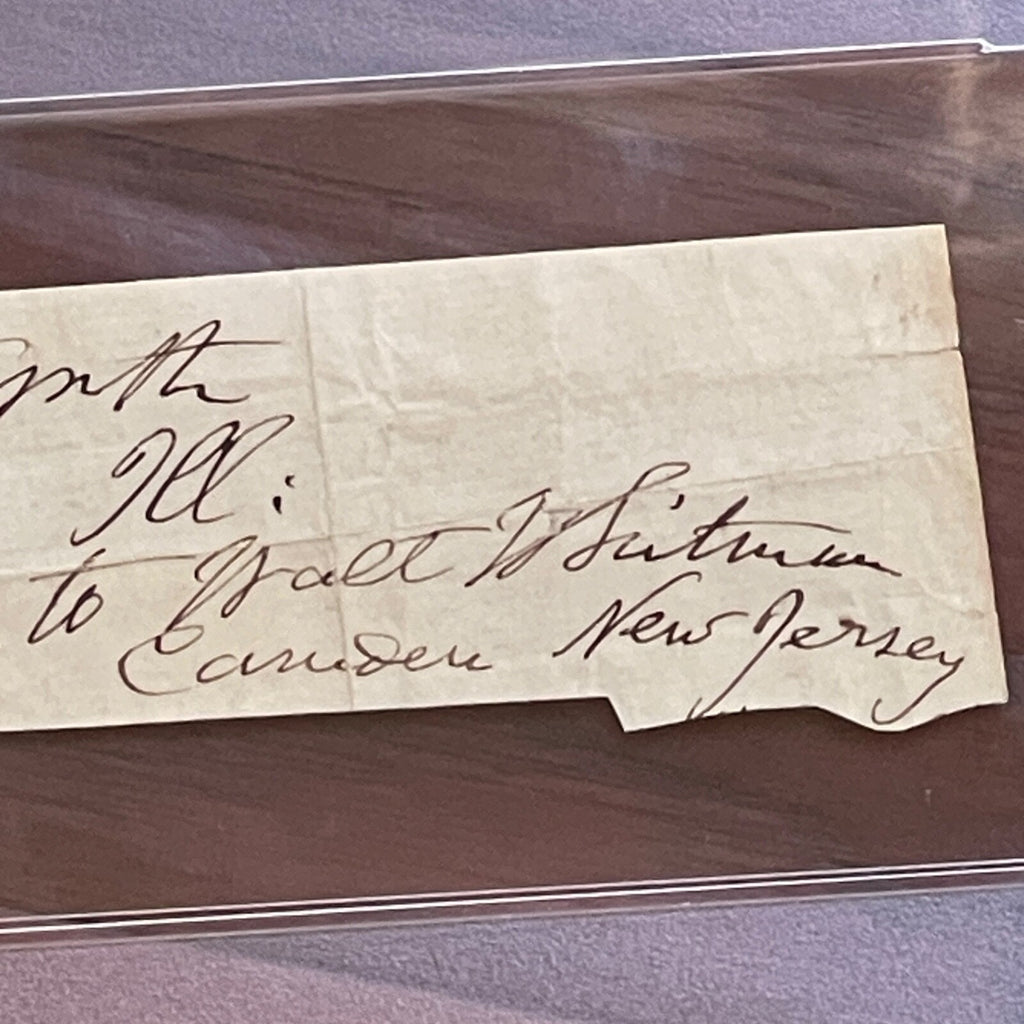 Ill:
to Walt Whitman
Camden New Jersey